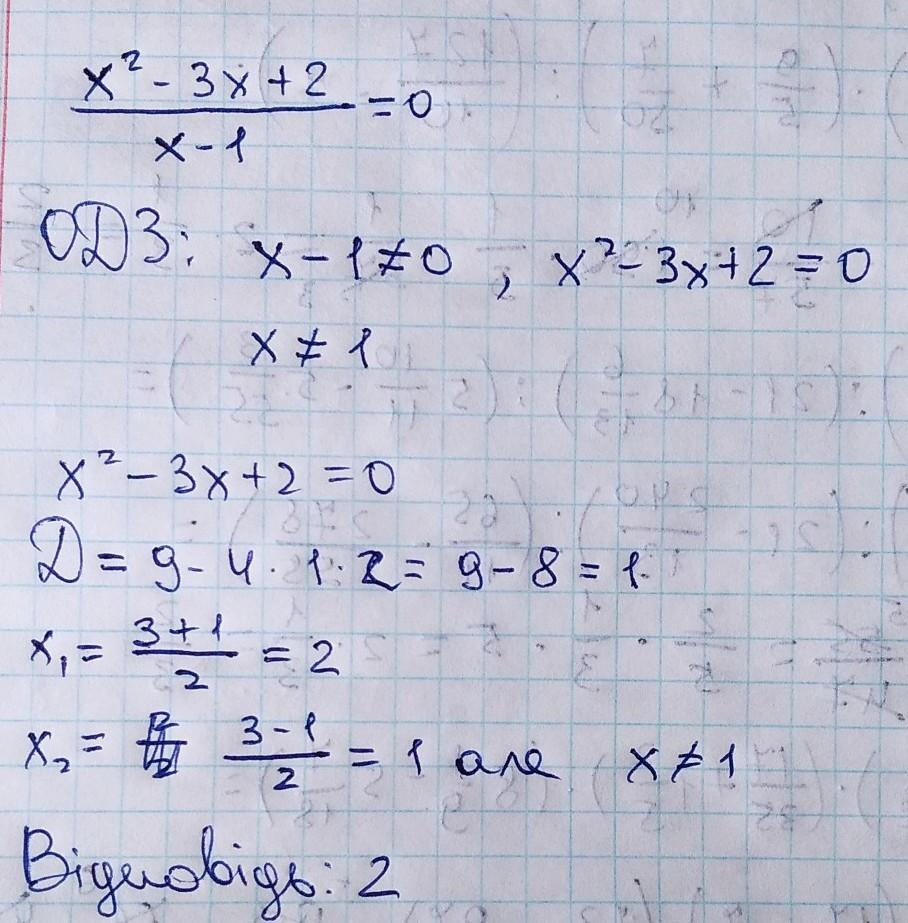 x² - 3x + 2 / x - 1 = 0
ОДЗ: x - 1 ≠ 0 , x² - 3x + 2 = 0
x ≠ 1
x² - 3x + 2 = 0
D = 9 - 4 · 1 · 2 = 9 - 8 = 1
x₁ = 3 + 1 / 2 = 2
x₂ = 3 - 1 / 2 = 1 але x ≠ 1
Відповідь: 2